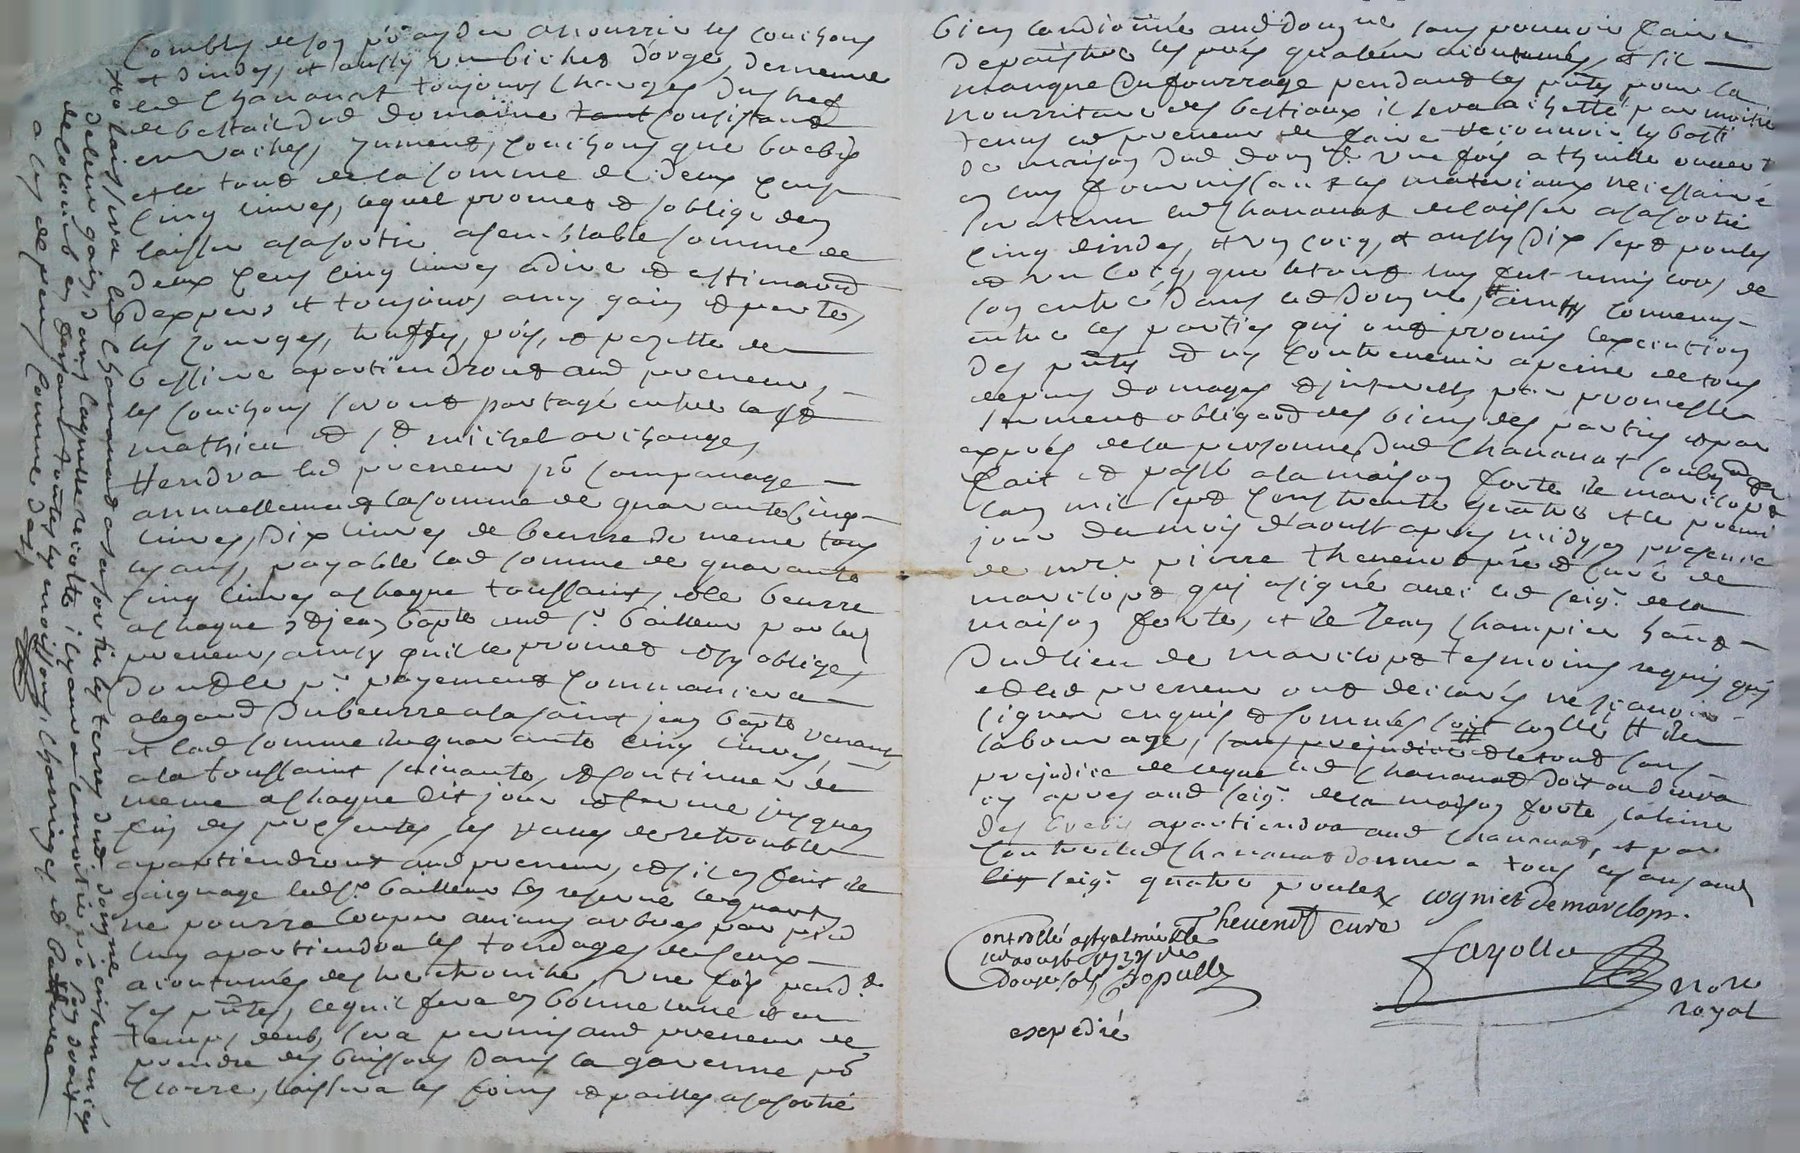 Combles de son po ayder a nourrir les couchons
et dindes, et aussy un bichet d'orge, demeure
led Chananat toujours chargés du chef
de bestail dud domaine tant consistand
en vaches, jument, couchons que brebis
et le tout de la somme de deux cens
cinq livres, lequel promet et s'oblige den
laisser a sa sortie a semblable somme de
deux cens cinq livres a dire et estimaōn
dexpers et toujours a my gain et perte,
les courges, truffes, pois, et pezette de
bessive apartiendront aud preneur,
les couchons seront partagé entre la st
mathieu et st michel archange,
tiendra led preneur po companage
annuellement la somme de quarante cinq
livres, dix livres de beurre de meme tous
les ans, payable lad somme de quarante
cinq livres a chaque toussaint, et le beurre
a chaque st jean bapte aud sr bailleur par led
preneur, ainsy quil le promet et sy oblige,
dont le pr payement commancera
a legard du beurre a la saint jean bapte venant
et lad somme de quarante cinq livres
a la toussaint suivante, et continuer de
meme a chaque dit jour et terme jusques
fin des presentes, les raves de retrouble
apartiendront aud preneur, et sil en fait de
gaignage led sr bailleur les reserve le quart,
ne pourra couper aucuns arbres par pied
luy apartiendra les tondages de ceux
acoutumés destre tronché, une fois pendt
les ptes, ce quil fera en bonne lune et en
temps deub, sera permis aud preneur de
prendre des buissons dans la garenne po
clorre, laissera les foins et pailles a sa sortie
# laissera led Chananat a sa sortie les terres dud domne ensemencées
de leur gain, dans laquelle recolte il y aura la moitié po son droit
de colonib en payant toutes les moissons, charriages et batture
a ses depens comme dessus
bien condionné aud domne sans pouvoir faire
depaistre les prés qualeur acoutumés, et sil
manque du fourrage pendant les ptes pour la
nourriture des bestiaux il sera achetté par moitié
tenus led preneur de faire recouvrir les basti
de maison dud domne une fois a thuille ouvert
en luy fournissant les materiaux necessaire
sera tenu led Chananat de laisser a sa sortie
cinq dindes, et un cocq, et aussy dix sept poules
et un cocq, que le tout luy fut remis lors de
son entrée dans led domne, # ainsy convenus
entre les parties qui ont promis lexecution
des ptes et ny contrevenir a peine de tous
depens domages et interests par promesse
serment obligaōn des biens des parties et par
exprés de la personne dud Chananat soubmission
fait et passé a la maison forte de marclopt
lan mil sept cens trente quatre et le premier
jour du mois d'aoust apres midy, en presence
de mre pierre thevenot ptre et curé de
marclopt qui a signé avec led seigr de la
maison forte, et de Jean Champier hānt
dud lieu de marclopt tesmoins requis qui
et led preneur ont declarés ne sçavoir
signer enquis et sommés soit coylle # de
labourage, sans prejudice et le tout sans
prejudice de ceque led Chananat doit ou devra
cy apres aud seigr de la maison forte, la laine
des brebis apartiendra aud Chananat, et par
contre led Chananat donnera tous les ans aud
sieur seigr quatre poules
cogniet de marclopt.
Thevenot curé
fayolle
nore
royal
Controllé a st galmier le
aoust 1734
douze sols Dopulle
expedié